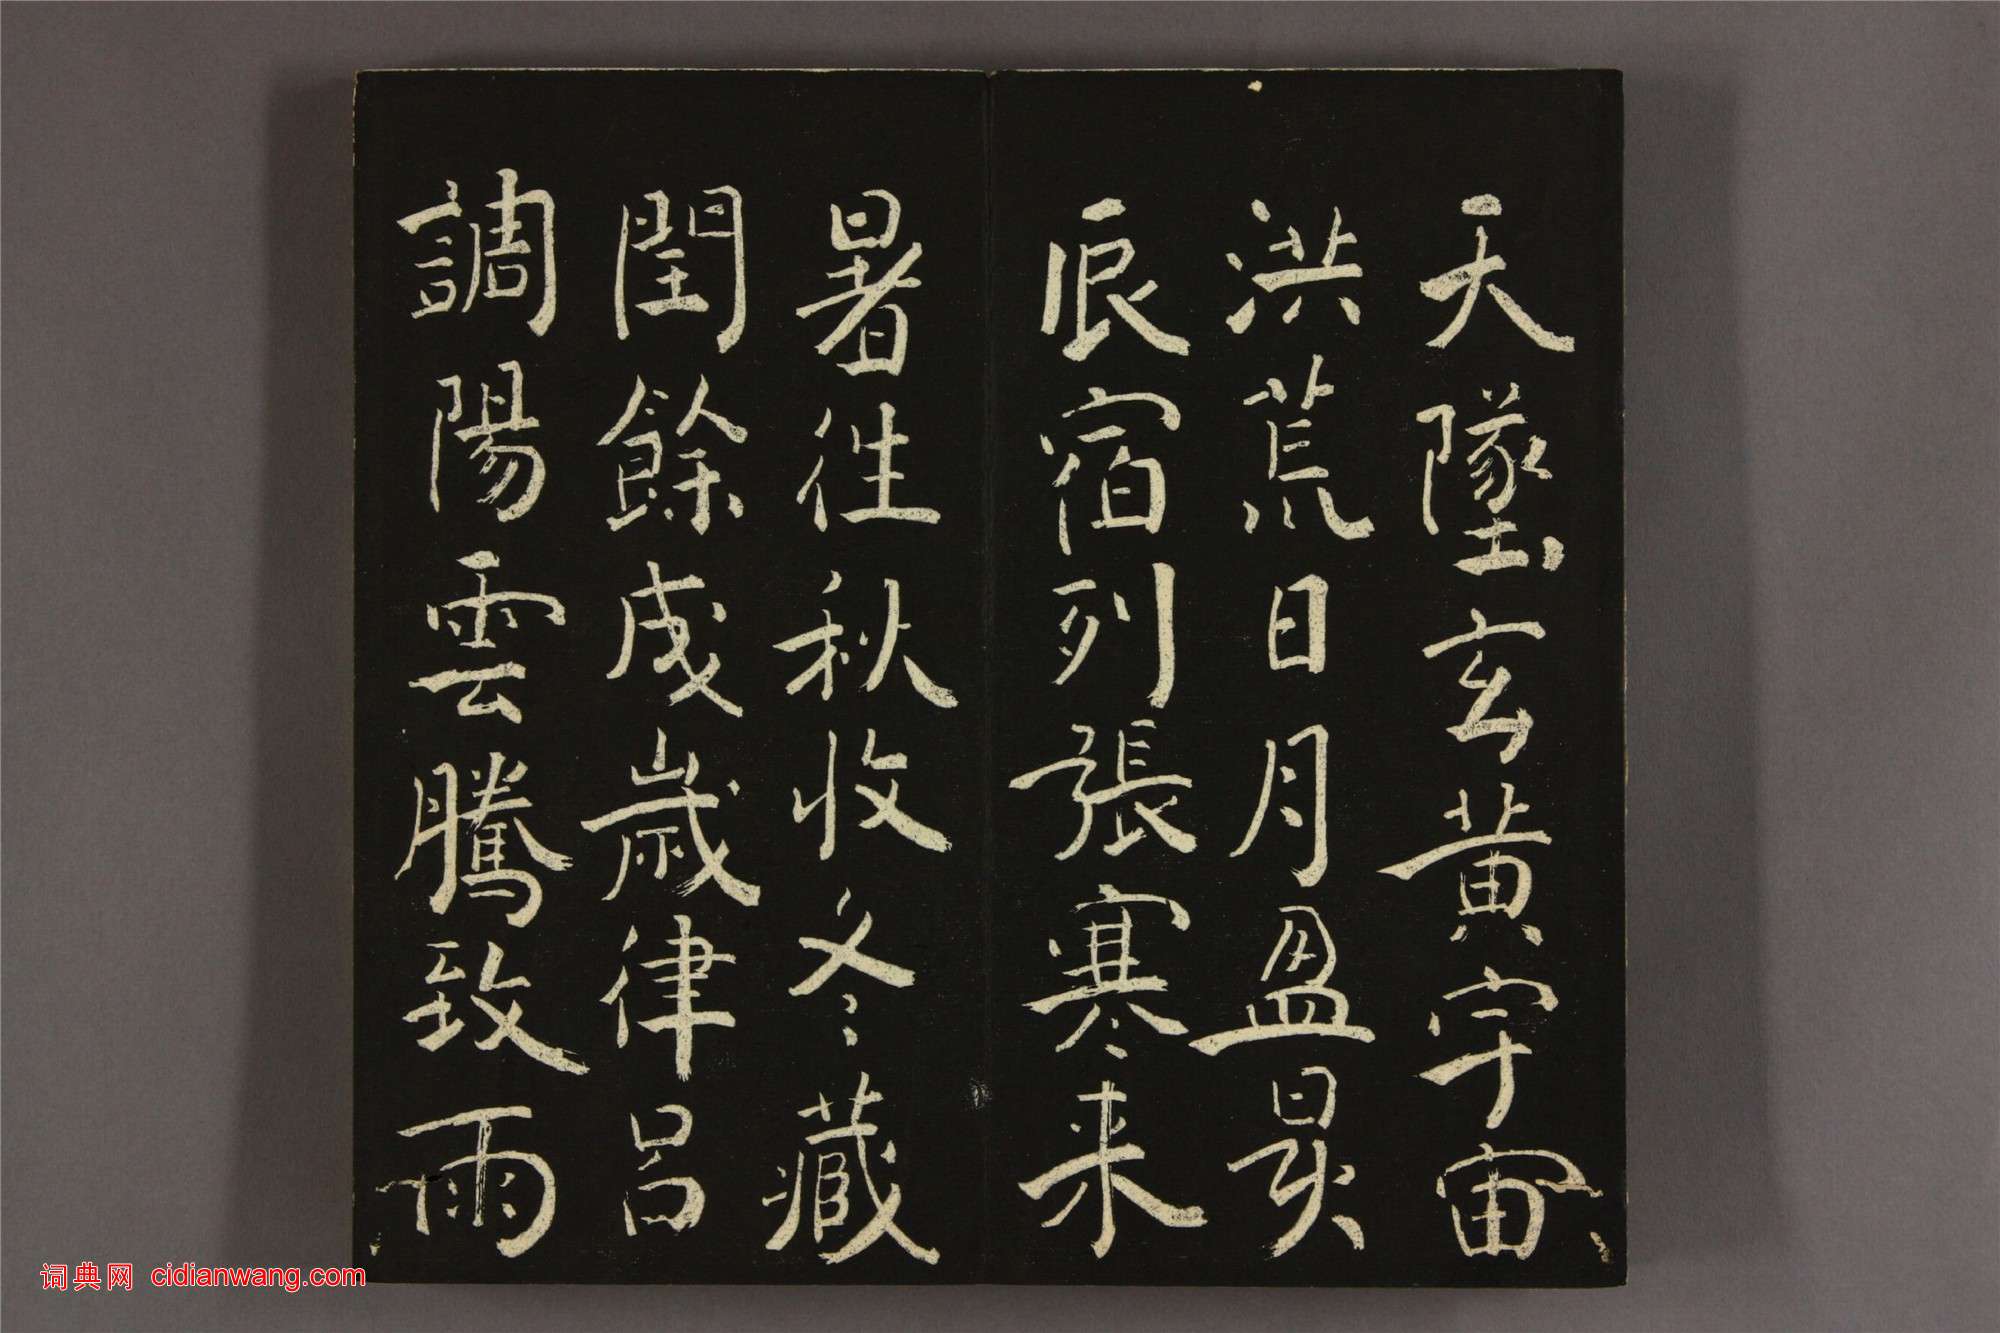 天墜玄黃宇宙
洪荒日月盈昃
辰宿列張寒来
暑往秋收冬藏
閏餘成歲律呂
調陽雲騰致雨
词典网 cidianwang.com